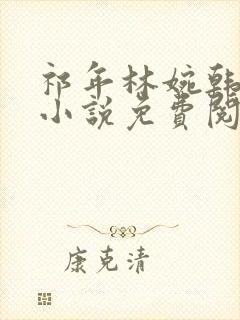 祁年林婉韩
小说免費阅
康克清